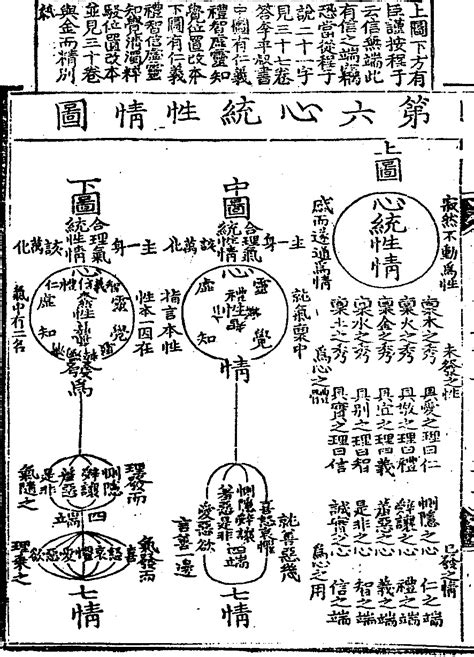 上圖下方有
臣謹按程子
云信無端此
有信之端竊
恐當從程子
說二十一字
見三十七卷
答李平叔書
中圖有仁義
禮智虛靈知
覺位置改本
下圖有仁義
禮智信虛靈
知覺淸濁粹
駁位置改本
並見三十卷
與金而精別
紙
第六心統性情圖
上圖
心統性情
寂然不動爲性
感而遂通爲情
未發之性
稟木之秀 具愛之理曰仁
稟火之秀 具敬之理曰禮
稟金之秀 具宜之理曰義
稟水之秀 具別之理曰智
稟土之秀 具實之理曰信
爲心之體
已發之情
惻隱之心 仁之端
辭讓之心 禮之端
羞惡之心 義之端
是非之心 智之端
誠實之心 信之端
爲心之用
中圖
合理氣
統性情
主一身
該萬化
心
虛
靈
知
覺
就氣稟中
指言本性
情
就善惡幾
言善一邊
惻隱辭讓
羞惡是非
四端
喜怒哀懼
愛惡欲
七情
下圖
合理氣
統性情
主一身
該萬化
心
仁
禮
信
義
智
虛
靈
知
覺
性本一因在
氣中有二名
發爲
理發而
氣隨之
惻隱
辭讓
羞惡
是非
四端
氣發而
理乘之
喜怒哀懼愛惡欲
七情